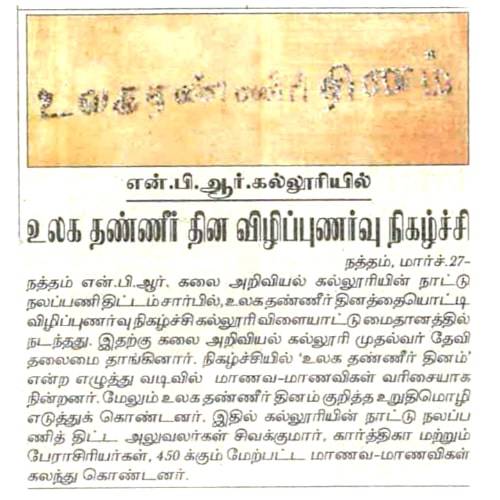 உலக தண்ணீர் தினம்
என்.பி.ஆர்.கல்லூரியில்
உலக தண்ணீர் தின விழிப்புணர்வு நிகழ்ச்சி
நத்தம், மார்ச்.27-
நத்தம் என்.பி.ஆர். கலை அறிவியல் கல்லூரியின் நாட்டு
நலப்பணி திட்டம் சார்பில், உலக தண்ணீர் தினத்தையொட்டி
விழிப்புணர்வு நிகழ்ச்சி கல்லூரி விளையாட்டு மைதானத்தில்
நடந்தது. இதற்கு கலை அறிவியல் கல்லூரி முதல்வர் தேவி
தலைமை தாங்கினார். நிகழ்ச்சியில் ‘உலக தண்ணீர் தினம்’
என்ற எழுத்து வடிவில் மாணவ-மாணவிகள் வரிசையாக
நின்றனர். மேலும் உலக தண்ணீர் தினம் குறித்த உறுதிமொழி
எடுத்துக் கொண்டனர். இதில் கல்லூரியின் நாட்டு நலப்ப
ணித் திட்ட அலுவலர்கள் சிவக்குமார், கார்த்திகா மற்றும்
பேராசிரியர்கள், 450 க்கும் மேற்பட்ட மாணவ-மாணவிகள்
கலந்து கொண்டனர்.